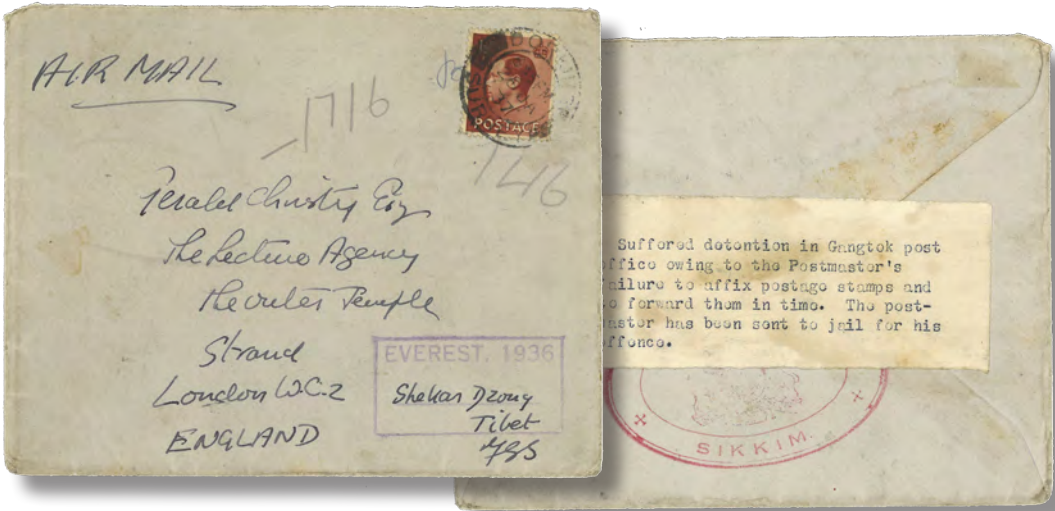 AIR MAIL
1716
POSTAGE
146
Gerald Christy Esq
The Lecture Agency
The Outer Temple
Strand
London W.C.2
ENGLAND
EVEREST. 1936
Shekar Dzong
Tibet
FSS
Suffered detention in Gangtok post
ffice owing to the Postmaster's
ailure to affix postage stamps and
o forward them in time. The post-
aster has been sent to jail for his
ffence.
SIKKIM.